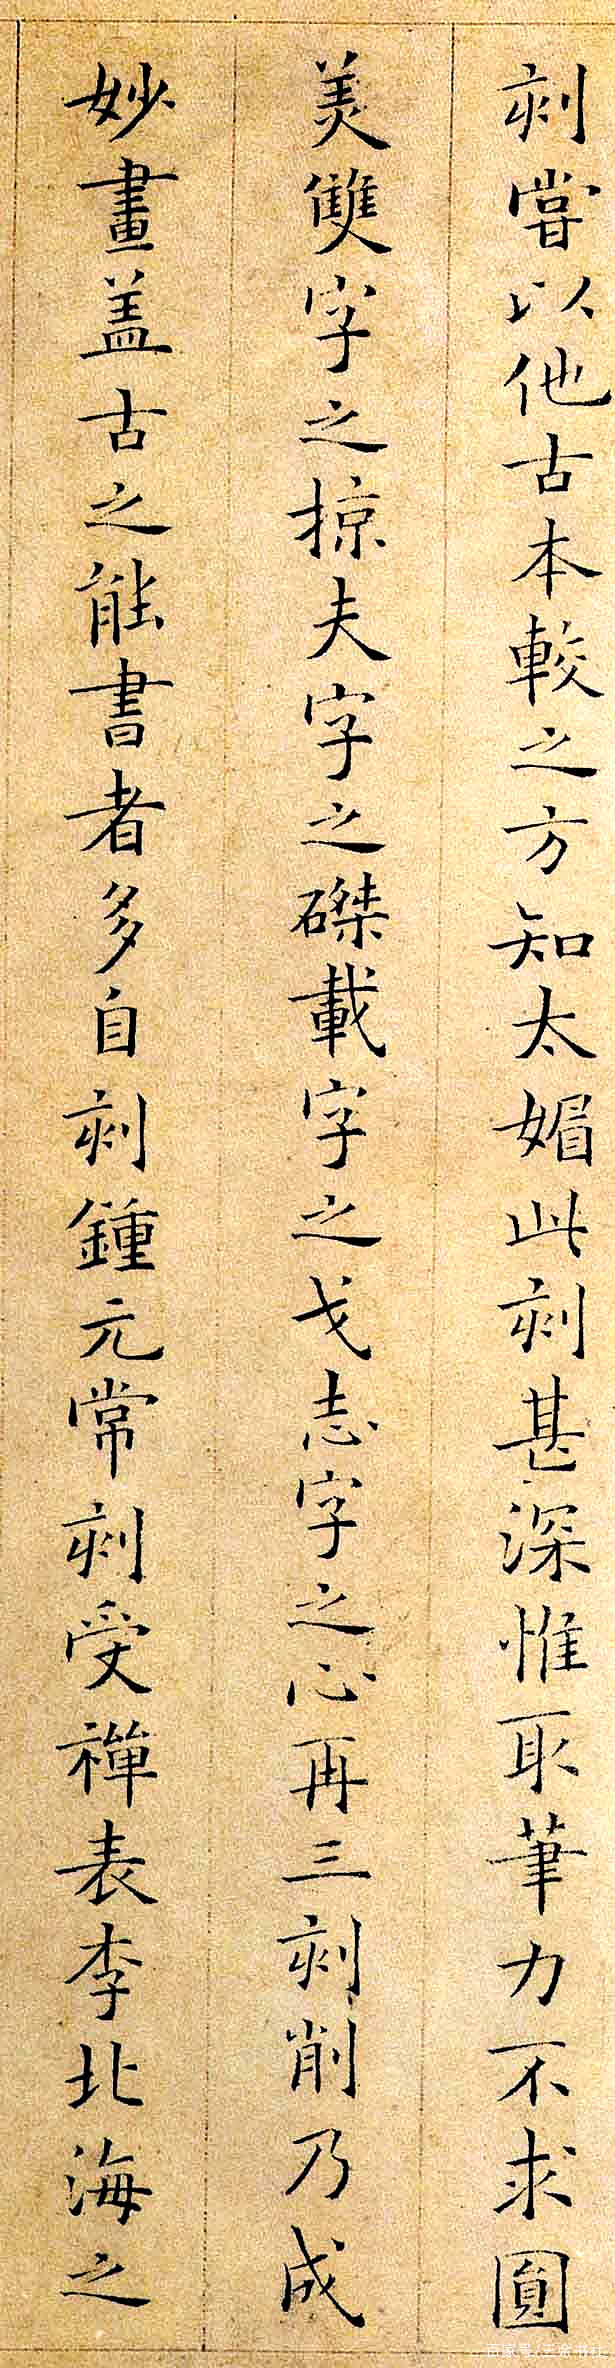 刻嘗以他古本較之方知太媚此刻甚深惟取筆力不求圓
美雙字之掠夫字之磔載字之戈志字之心再三刻削乃成
妙畫盖古之能書者多自刻鍾元常刻受禪表李北海之
百家号/三余书社